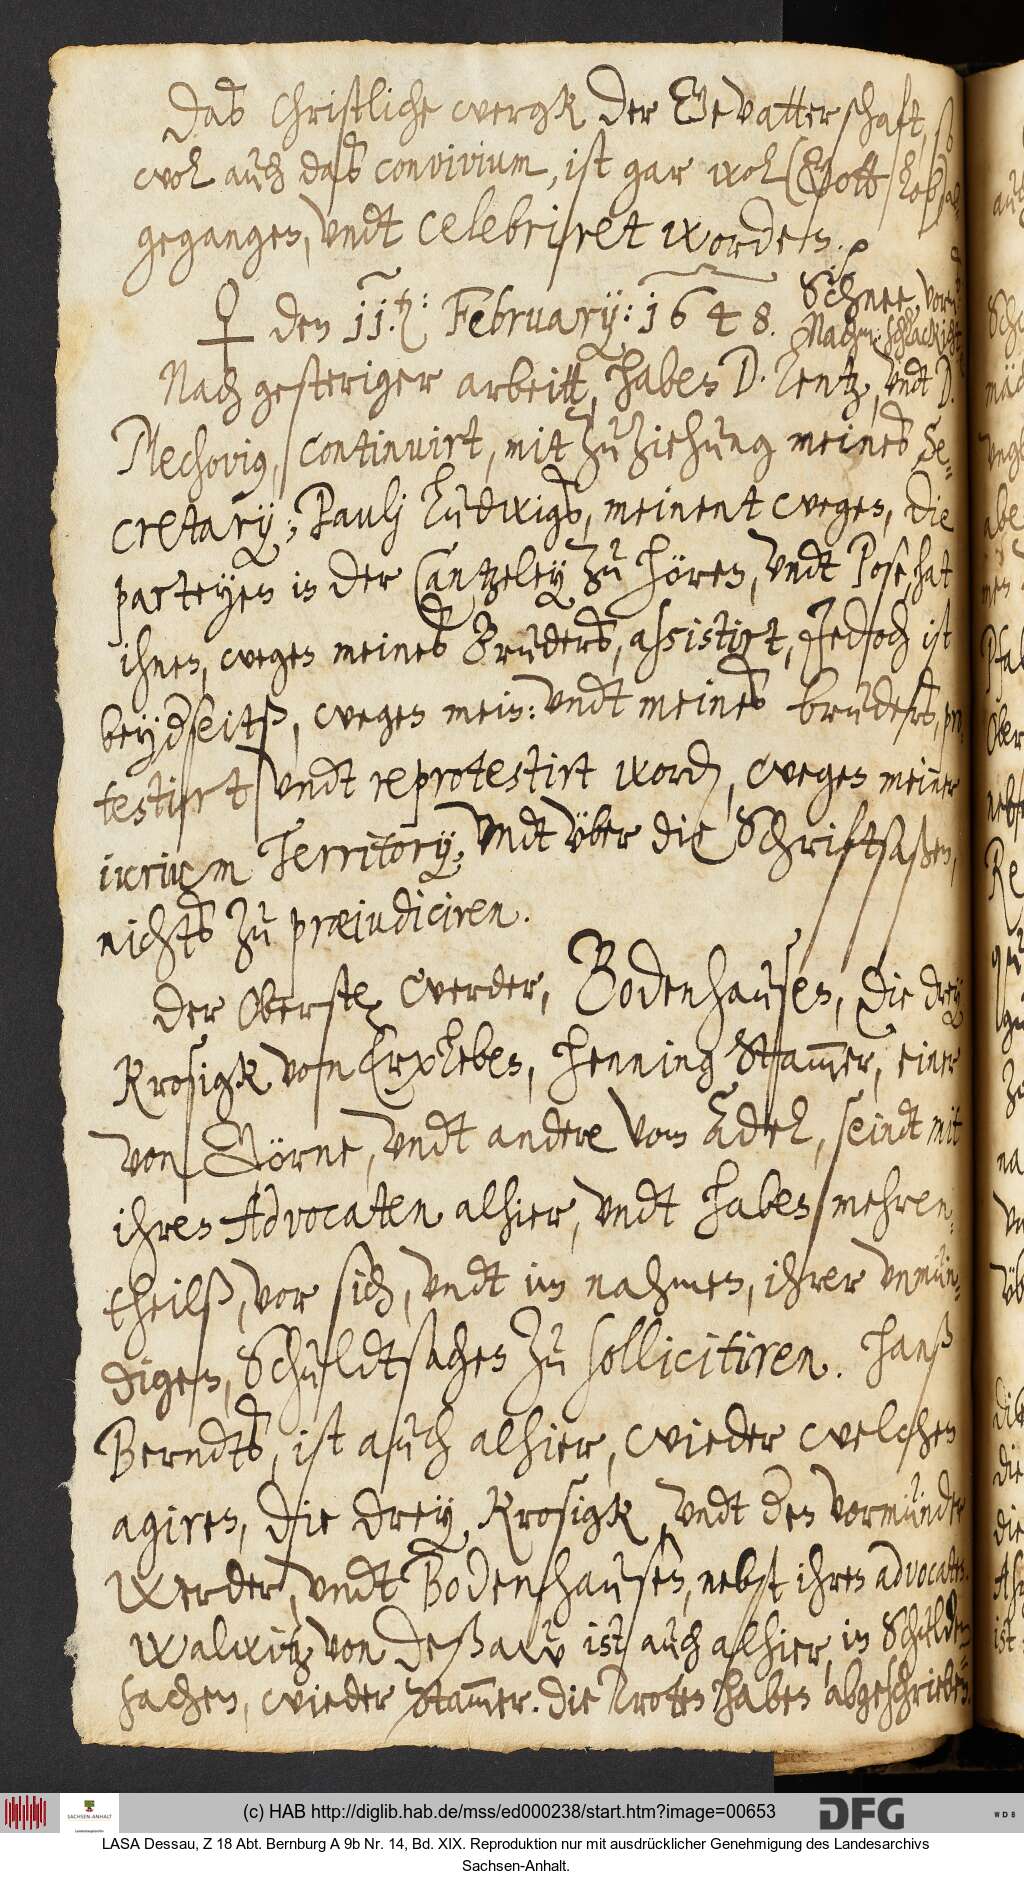 Das Christliche wergk der Gevatterschaft, so
wol auch das convivium, ist gar wol (Gott lob) ab
gegangen, undt celebriret worden.
♀ den 11.t: February: 1648. Schnee, vorm
Nachm: schlackicht
Nach gesteriger arbeitt, haben D. Lentz, undt D.
Mechovius, continuirt, mit zuziehung meines Se-
cretary; Paulj Ludwigs, meinent wegen, die
parteyen in der Cantzeley zu hören, undt Pose, hat
ihnen, wegen meines Bruders, assistirt, Jedoch ist
beyderseitß, wegen mein: undt meines bruders, pro-
testirt undt reprotestirt word, wegen meiner
iurium Territory; undt über die Schriftsaßen,
nichts zu præjudiciren.
Der Oberste Werder, Bodenhausen, die drey
Krosigk von Erxleben, Henning Stammer, einer
von Görne, undt andere vom Adel, seindt mit
ihren Advocaten alhier, undt haben mehren-
theilß, vor sich, undt im nahmen, ihrer unmün-
digen, Schuldtsachen zu sollicitiren. Hanß
Berndts, ist auch alhier, wieder welchen
agiren, die drey Krosigk, undt den vormünder
Werder, undt Bodenhausen, nebst ihren advocaten.
Walwitz von Deßaw ist auch alhier, in Schulden
sachen, wieder Stammer. Die Troten haben abgeschrieben.
(c) HAB http://diglib.hab.de/mss/ed000238/start.htm?image=00653
SACHSEN-ANHALT
DFG
WDB
LASA Dessau, Z 18 Abt. Bernburg A 9b Nr. 14, Bd. XIX. Reproduktion nur mit ausdrücklicher Genehmigung des Landesarchivs
Sachsen-Anhalt.